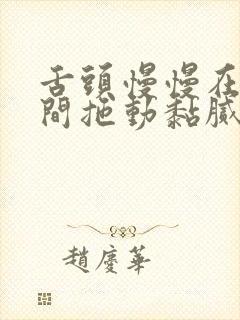 舌頭慢慢在
間拖動黏膩
趙慶華